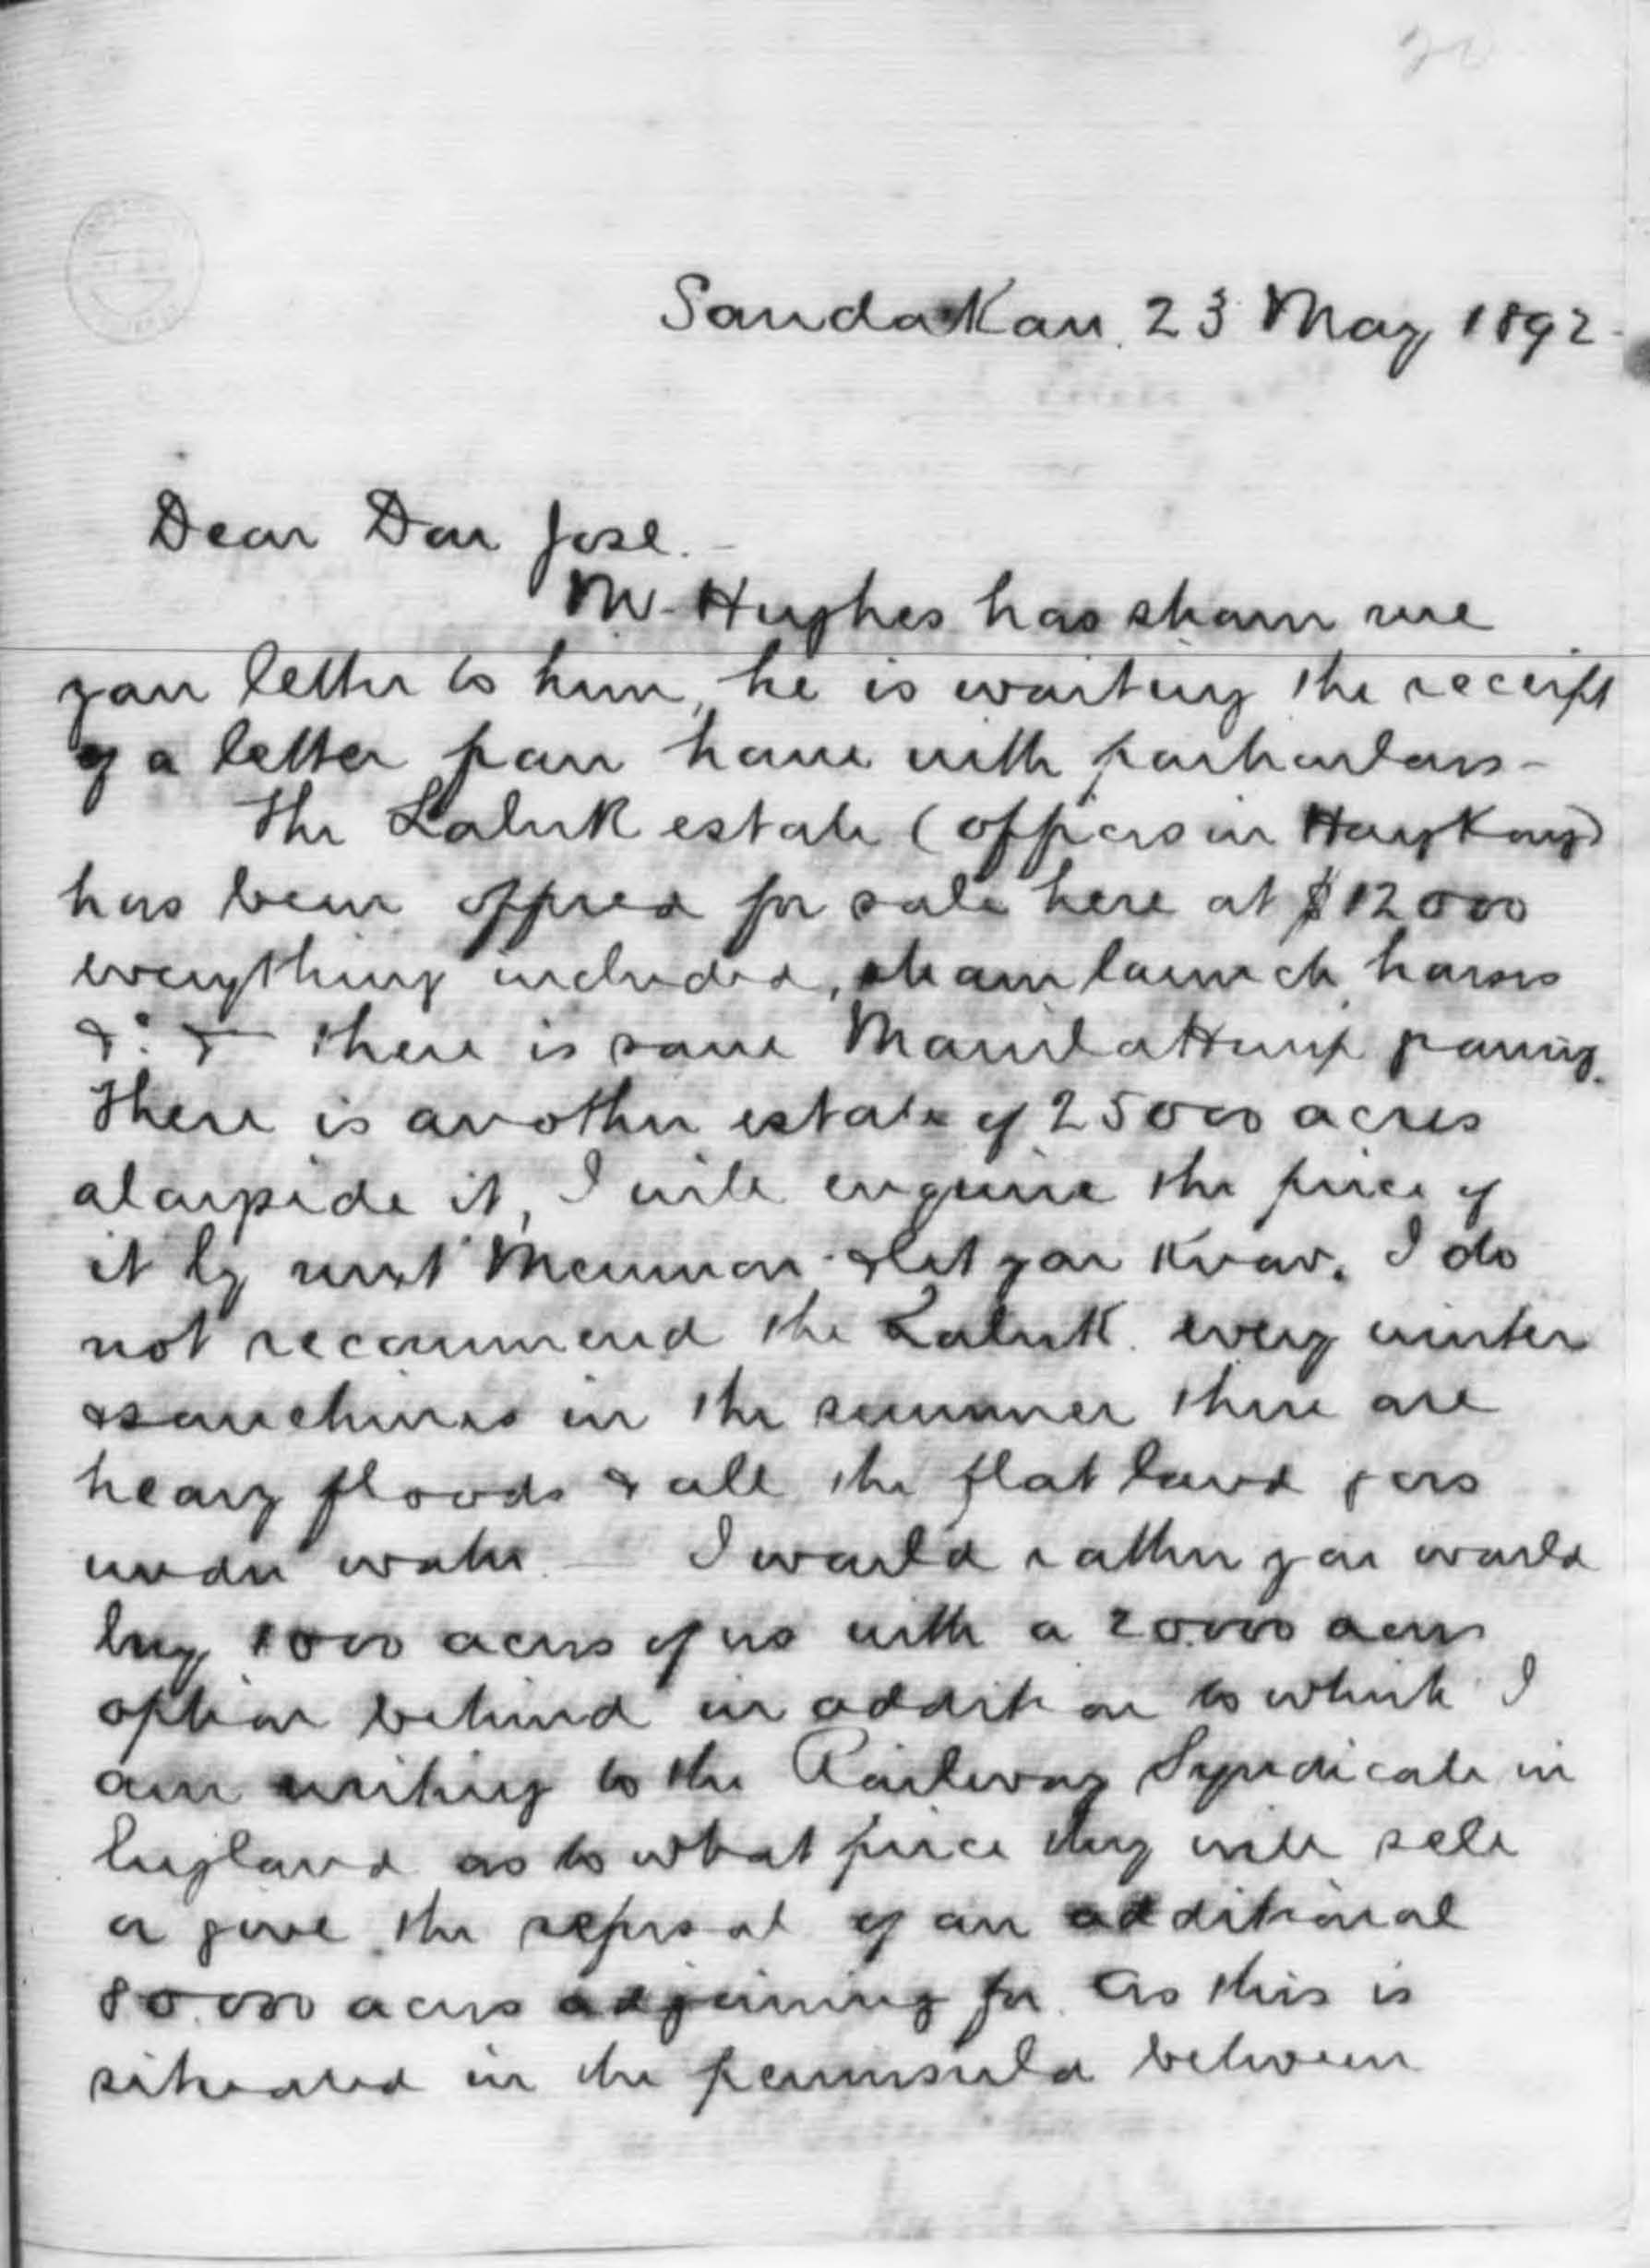 20
Sandakan. 23 May 1892.
Dear Don José.
Mr. Hughes has shown me
your letter to him, he is waiting the receipt
of a letter from home with particulars -
The Labuk estate (offices in HongKong)
has been offered for sale here at $12000
everything included, steam launch, houses
&c &c there is some Manila Hemp growing.
There is another estate of 25000 acres
alongside it, I will enquire the price of
it by next Memnon & let you know. I do
not recommend the Labuk. every winter
& sometimes in the summer there are
heavy floods & all the flat land goes
under water. — I would rather you would
buy 1000 acres of us with a 20.000 acres
option behind in addition to which I
am writing to the Railway Syndicate in
England as to what price they will sell
or give the refusal of an additional
80.000 acres adjoining for. As this is
situated in the peninsula between